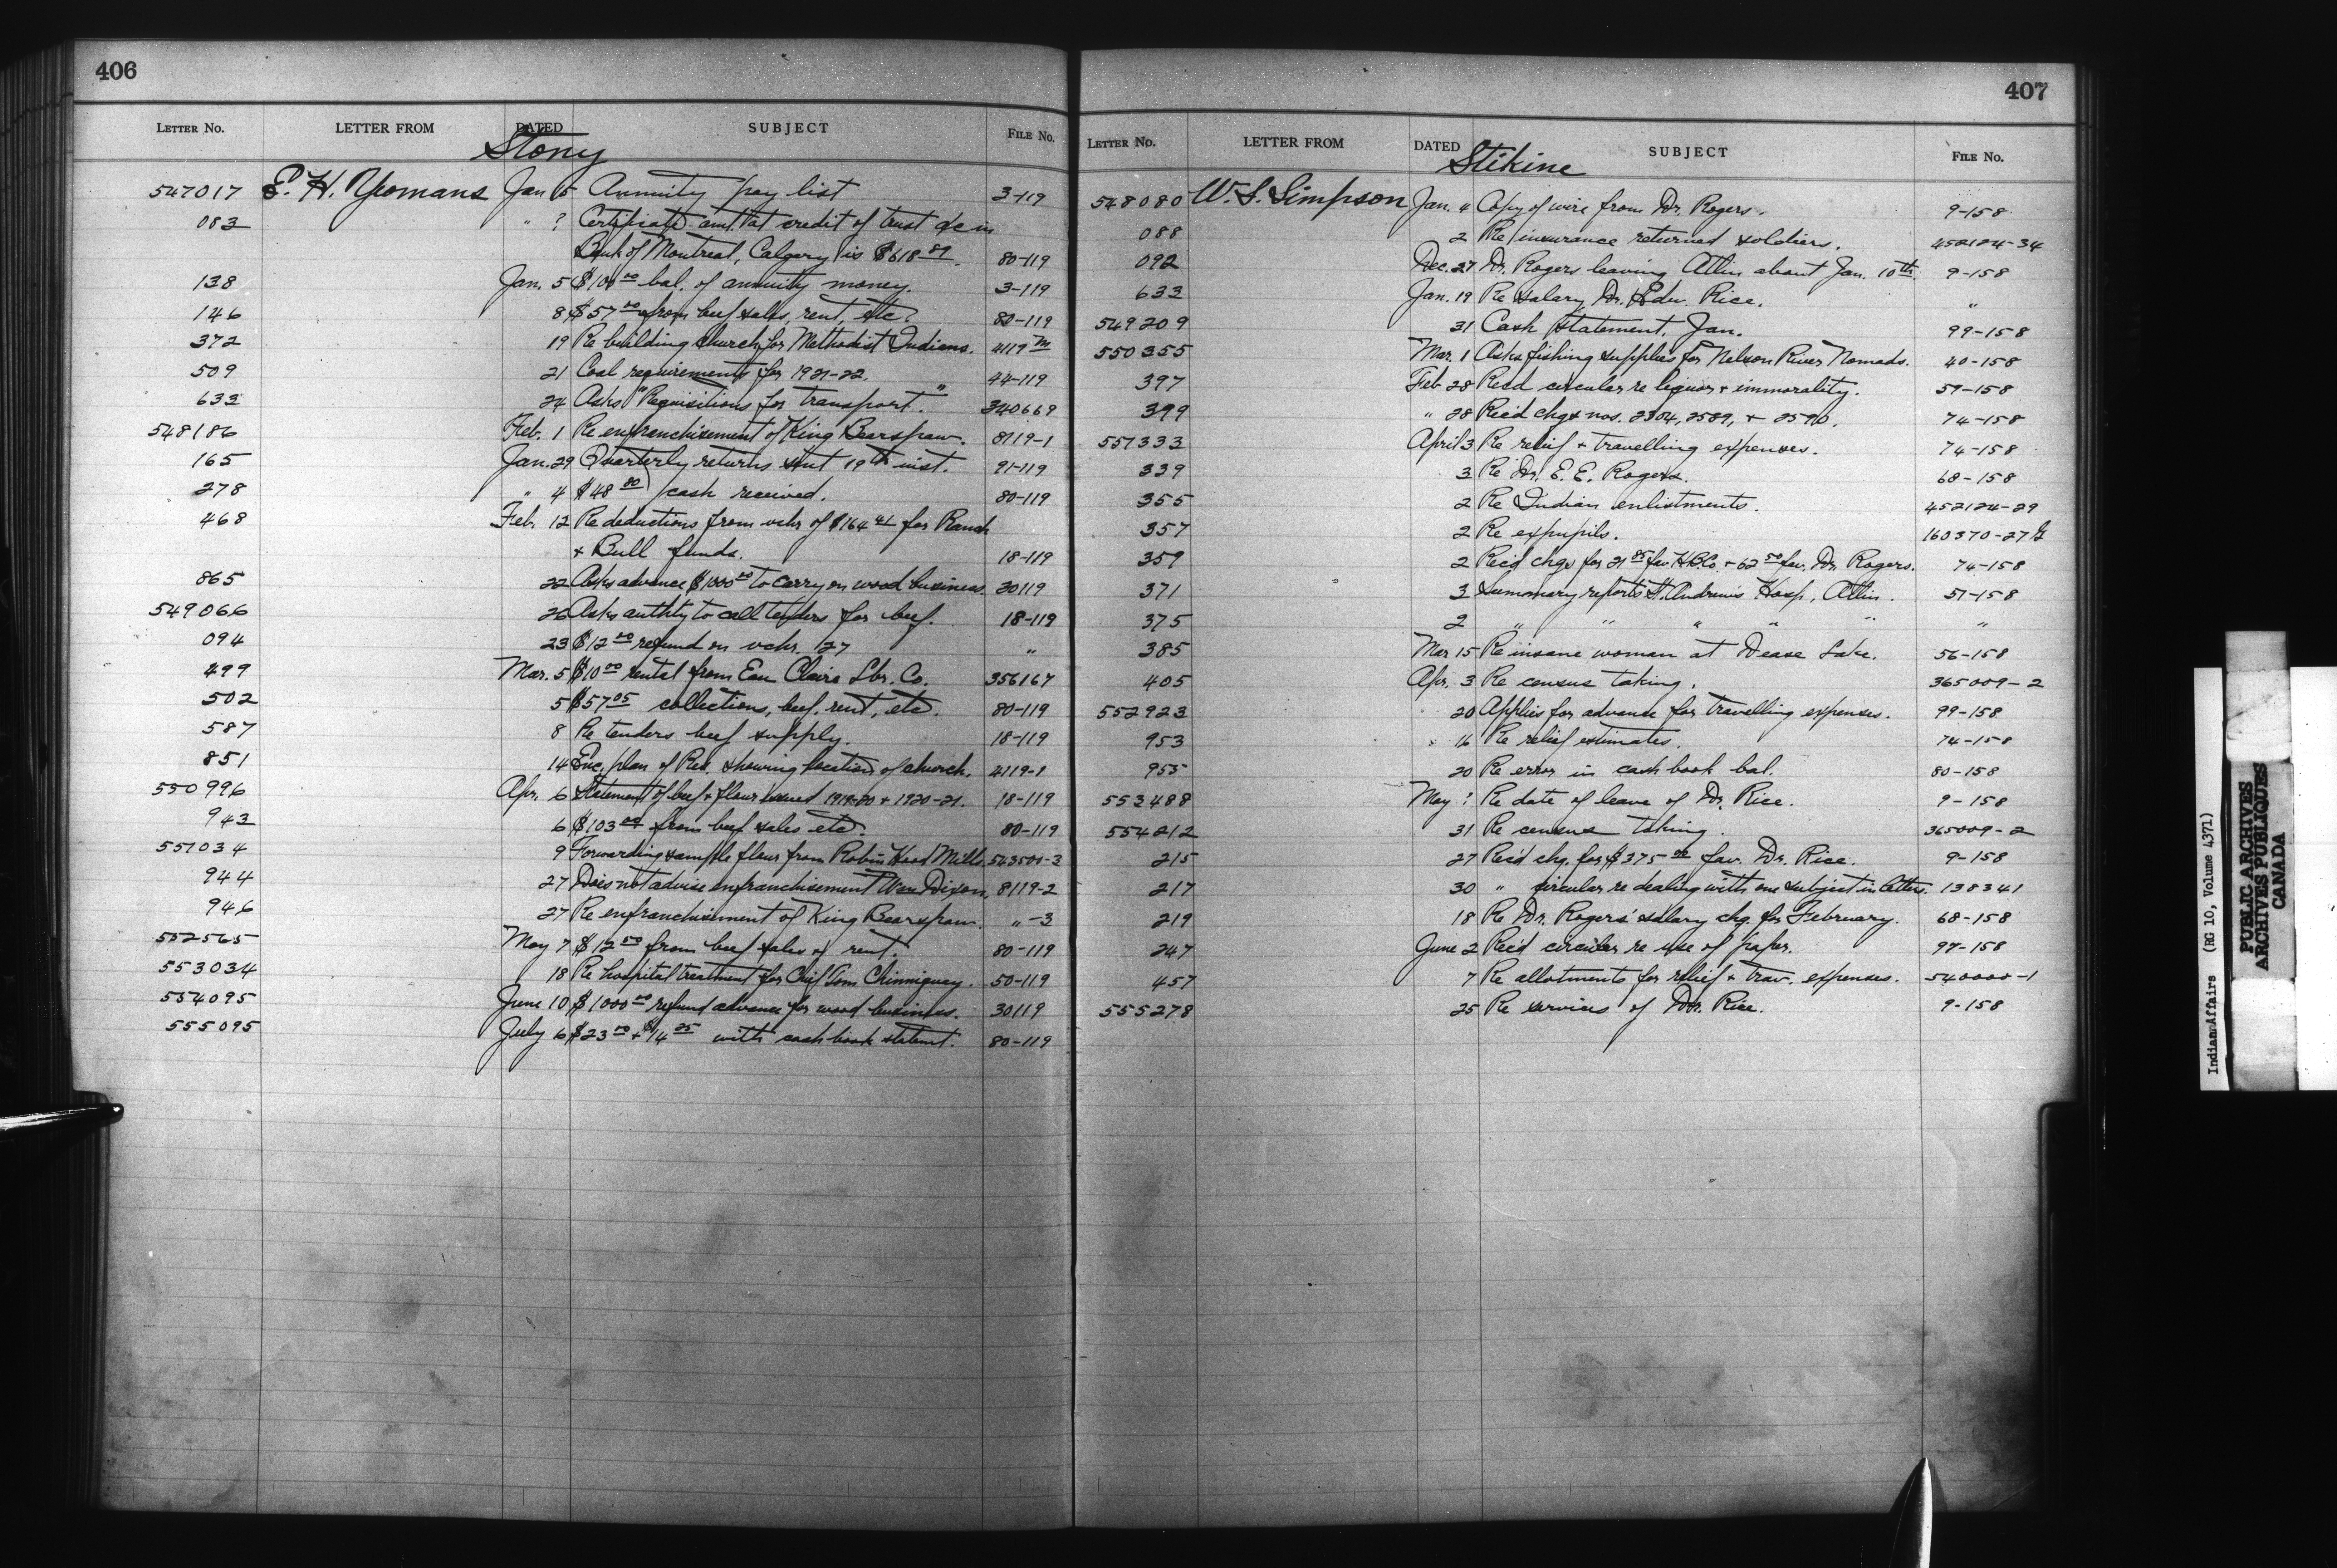 406
LETTER NO. LETTER FROM DATED SUBJECT FILE No.
Stony
547017 E. H. Yeomans Jan 5 Annuity pay list 3-119
083 " ? Certificate amt. at credit of trust a/c in
Bank of Montreal, Calgary is $618.89. 80-119
138 Jan. 5 $100.00 bal. of annuity money. 3-119
146 8 $57.00 from beef sales, rent, etc. 80-119
372 19 Re building church for Methodist Indians. 4119 M
509 21 Coal requirements for 1921-22. 44-119
633 24 Asks "Requisitions for transport." 340669
548186 Feb. 1 Re enfranchisement of King Bearspaw. 8119-1
165 Jan. 29 Quarterly returns sent 19th inst. 91-119
278 " 4 $48.80 cash received. 80-119
468 Feb. 12 Re deductions from vchr of $164.41 for Ranch
+ Bull funds. 18-119
865 22 Asks advance $1000.00 to carry on wood business. 30119
549066 26 Asks authty to call tenders for beef. 18-119
094 23 $12.00 refund on vchr. 127 "
499 Mar. 5 $10.00 rental from Eau Claire Lbr. Co. 356167
502 5 $57.05 collections, beef, rent, etc. 80-119
587 8 Re tenders beef supply. 18-119
851 14 Enc. plan of Res. showing location of church. 4119-1
550996 Apr. 6 Statement of beef + flour issued 1919-20 + 1920-21. 18-119
943 6 $103.00 from beef sales etc. 80-119
551034 9 Forwarding sample flour from Robin Hood Mills. 543500-3
944 27 Does not advise enfranchisement Wm Dixon. 8119-2
946 27 Re enfranchisement of King Bearspaw. " -3
552565 May 7 $12.50 from beef sales + rent. 80-119
553034 18 Re hospital treatment for Chief Tom Chinniquay. 50-119
554095 June 10 $1000.00 refund advance for wood business. 30119
555095 July 6 $23.50 + $14.25 with cash book statemt. 80-119
407
LETTER NO. LETTER FROM DATED SUBJECT FILE No.
Stikine
548080 W. S. Simpson Jan. 4 Copy of wire from Dr. Rogers. 9-158
088 2 Re insurance returned soldiers. 452124-34
092 Dec. 27 Dr. Rogers leaving Atlin about Jan. 10th. 9-158
633 Jan. 19 Re salary, Dr. Edw. Rice. "
549209 31 Cash statement, Jan. 99-158
550355 Mar. 1 Asks fishing supplies for Nelson River Nomads. 40-158
397 Feb. 28 Recd circular re liquor + immorality. 59-158
399 " 28 Rec'd chqs nos. 2304, 2589, + 2590. 74-158
551333 April 3 Re relief + travelling expenses. 74-158
339 3 Re Dr. E. E. Rogers. 68-158
355 2 Re Indian enlistments. 452124-29
357 2 Re expupils. 160370-27
359 2 Rec'd chqs for 21.85 fav. H.B.Co. + 62.50 fav. Dr. Rogers. 74-158
371 3 Summary reports St. Andrew's Hosp., Atlin. 51-158
375 2 " " " " " "
385 Mar 15 Re insane woman at Dease Lake. 56-158
405 Apr. 3 Re census taking. 365009-2
552923 20 Applies for advance for travelling expenses. 99-158
953 16 Re relief estimates. 74-158
955 20 Re error in cash book bal. 80-158
553488 May ? Re date of leave of Dr. Rice. 9-158
554212 31 Re census taking. 365009-2
215 27 Rec'd chq. for $375.00 fav. Dr. Rice. 9-158
217 30 " circular re dealing with one subject in letters. 138341
219 18 Re Dr. Rogers' salary chq. for February. 68-158
247 June 2 Rec'd circular re use of paper. 97-158
457 7 Re allotments for relief + trav. expenses. 540000-1
555278 25 Re services of Dr. Rice. 9-158
Indian Affairs (RG 10, Volume 4371)
PUBLIC ARCHIVES
ARCHIVES PUBLIQUES
CANADA